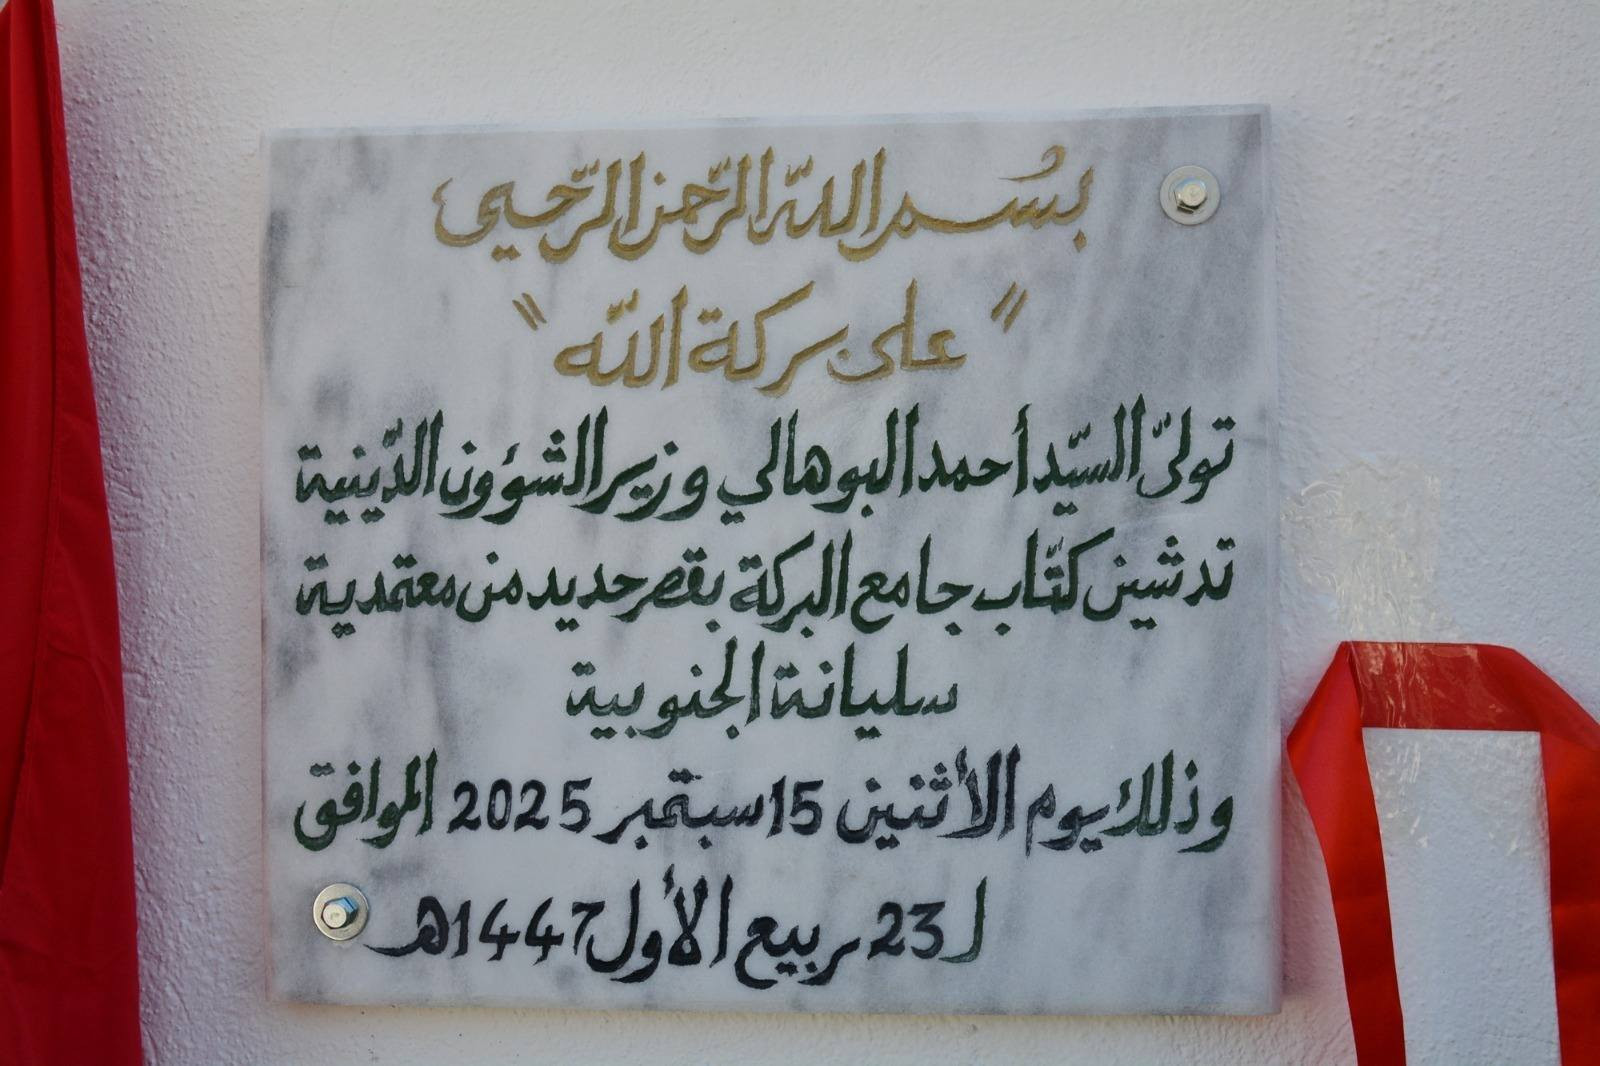 بسم الله الرّحمن الرّحيم
"على بركة الله"
تولّى السيّد أحمد البوهالي وزير الشؤون الدّينية
تدشين كتّاب جامع البركة بقصر حديد من معتمدية
سليانة الجنوبية
وذلك يوم الأثنين 15 سبتمبر 2025 الموافق
لـ 23 ربيع الأول 1447هـ